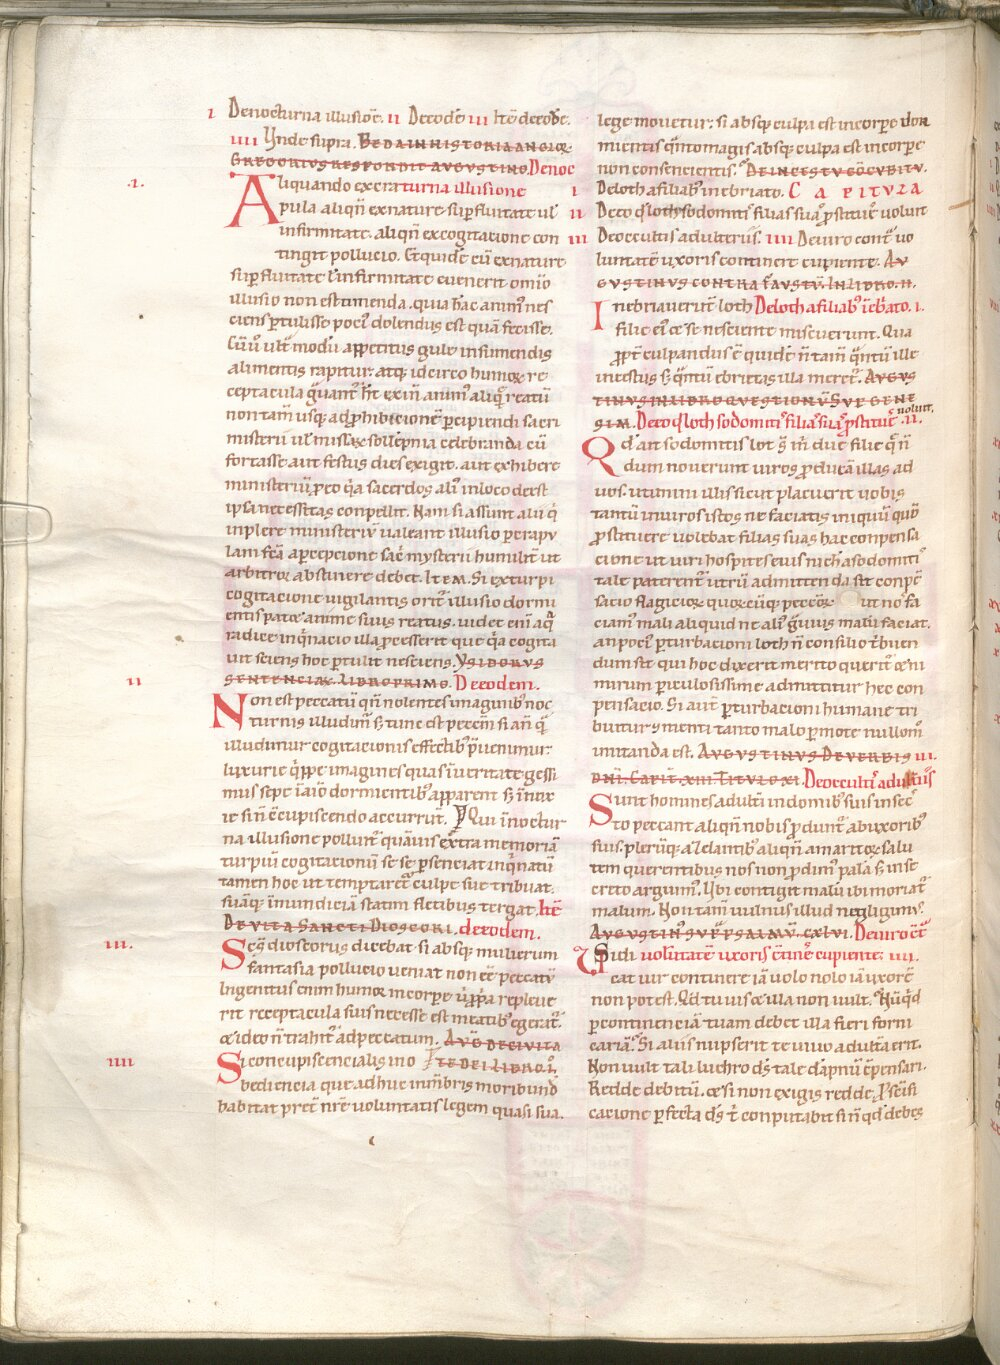 I Denocturna illusiōe. II Deeodē III Itē deeodē.
IIII Unde supra. BEDA IN HISTORIA ANGLOR
GREGORIUS RESPONDIT AUGUSTINO. Denoc
.I. Aliquando ex cra turna illusione
pula aliqn̄ ex nature suꝑfluitate ul̄
infirmitate. aliqn̄ ex cogitacione con
tingit pollucio. Et quidē cū ex nature
suꝑfluitate l̄ infirmitate evenerit om̄io
illusio non est timenda. quia hāc animꝰ nes
ciens ꝑtulisse pocꝰ dolendus est quā fecisse.
Cū ū ult̄ modū appetitus gule in sumendis
alimentis rapitur. atq; idcirco humoꝝ re
ceptacula grauant̄ ht̄ exin̄ animꝰ aliq̄ reatū
non tam̄ usq; ad ꝓhibicionē ꝑcipiendi sacri
misterii ul̄ missaꝝ sollēpnia celebranda cū
fortasse aut festus dies exigit. aut exhibere
ministeriū ꝓ eo q̇a sacerdos aliꝰ in loco deest
ipsa necessitas conpellit. Nam si assunt alii q̇
inplere ministeriū ualeant illusio ꝑ crapu
lam fc̄a a ꝑcepcione sac̄ mysterii humilit̄ ut
arbitror abstinere debet. ITEM. Si ex turpi
cogitacione uigilantis orit̄ illusio dormi
entis patꝫ animꝰ suus reatus. uidet eni aq̄
radice inq̇nacio illa ꝓcesserit que q̇a cogita
uit sciens hoc ꝑtulit nesciens. YSIDORUS
II SENTENCIAꝜ. LIBRO PRIMO. Deeodem.
Non est peccatū qn̄ nolentes imaginibꝰ noc
turnis illudimꝰ sꝫ tunc est peccm̄ si anq̄
illudimur cogitacionis effectibꝰ p̄uenimur.
luxurie q̇ppe imagines quas iueritate gessi
mus sepe īaīo dormientibꝰ apparent sꝫ inox
ie sin̄ ēcupiscendo accurrūt. Qui inoctur
na illusione polluit̄ quāuis extra memoriā
turpiū cogitacionū se sē ꝑsenciat inq̇natū
tamen hoc ut temptaret̄ culpe sue tribuat.
suāq; īmundiciā statim fletibus tergat. Itē
DE VITA SANCTI DIOSCORI. deeodem.
III. Scs̄ dioscorus dicebat si absq; mulierum
fantasia pollucio ueniat non eē peccatū
Ingenitus enim humor in corpe ꝓppa repleue
rit receptacula suis necesse est meatibꝰ egerat̄.
& ideo n̄ trahit̄ ad peccatum. AUG DE CIVITA
IIII Si concupiscencialis ino TE DEI LIBRO I.
bediencia que adhuc in mēbris moribund
habitat pret̄ nr̄e uoluntatis legem quasi sua.
lege mouetur. si absq; culpa est in corpe dor
mientis q̇nto magis absq; culpa est in corpe
non consencientis. DE INCESTU CŌCUBITU.
I Deloth a filiabꝰ inebriato. CAPITULA
II De eo q̇ loth sodomitꝭ filias suas ꝓstituē uoluit
III De occultis adulteriis. IIII. De uiro contꝰ uo
luntatē uxoris continere cupiente. AU
GUSTINUS CONTRA FAUSTŪ. IN LIBRO. II.
Inebriauerūt loth Deloth a filiabꝰ iēbr̄ato. I.
filie eiꝰ & se nesciente miscuerunt. Qua
ꝓpt̄ culpandus ē quidē n̄ tam q̇ntū ille
incestus sꝫ q̇ntū ebrietas illa meret̄. AUGUS
TINUS IN LIBRO QUESTIONŪ SUPER GENE
SIM. De eo q̇ loth sodomitꝭ filias suas ꝓstituē uoluit. II.
Qd̄ ait sodomitis lot sꝫ m̄ due filie q̄ n̄
dum nouerunt uiros ꝓducā illas ad
uos. utimini illis sicut placuerit uobis
tantū in uiros istos ne faciatis iniquū quō
ꝓstituere uolebat filias suas hac conpensa
cione ut uiri hospites eius nich̄ a sodomitꝭ
tale paterent̄ utrū admittenda sit conpē
sacio flagicioꝝ quorūcūq; peccoꝝ ut nos fa
ciam̄ mali aliquid ne aliꝰ g̃uius malū faciat.
an pociꝰ ꝑturbacioni loth n̄ consilio t̄buen
dum sit qui hoc dixerit merito querit̄ & ni
mirum ꝑiculosissime admittitur hec con
pensacio. Si aut̄ ꝑturbacioni humane tri
buitur ꝯ menti tanto malo ꝑmote nullom̄
imitanda est. AUGUSTINUS DE VERBIS III.
DNĪ. CAPIT. XIII TITULO XI. Deoccultꝭ adulꝉiis
Sunt homines adulti in domibꝰ suis in sec̄
to peccant aliqn̄ nobis ꝓdunt̄ ab uxoribꝰ
suis. plerūq; a l zelantibꝰ aliqn̄ a marito salu
tem querentibus nos non ꝓdimꝰ pala sꝫ in se
creto arguimꝰ. Ubi contigit malū ibi moriat̄
malum. Non tam̄ uulnus illud negligimꝰ.
AUGUSTINꝰ SUPER PSALMŪ. CXLVI. Deuiro cꝰ
Audi uoluntatē uxoris ētinēe cupiente. IIII.
cat uir continere iā uolo nolo iā uxorē
non potest. Qd̄ tu uis & illa non uult. Nūq̇d
ꝑ continenciā tuam debet illa fieri forni
caria. Si alii nupserit te uiuo adultera erit.
Non uult tali lucro ds̄ tale dāpnū ēpensari.
Redde debitū. & si non exigis redde. Pro scīfi
cacione ꝑfecta ds̄ t̄ conputabit si n̄ qd̄ debes